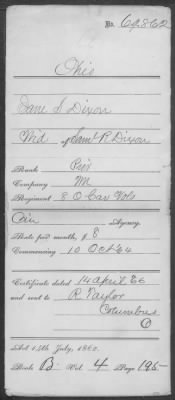 No. 62862
Ohio
Jane S. Dixon
Wid of Saml R Dixon
Rank Priv
Company M
Regiment 8 O Cav Vols
Cin Agency.
Rate per month, $ 8
Commencing 10 Oct '64
Certificate dated 14 April '66
and sent to R Taylor
Columbus
O
Act 14th July, 1862.
Book B Vol. 4 Page 195